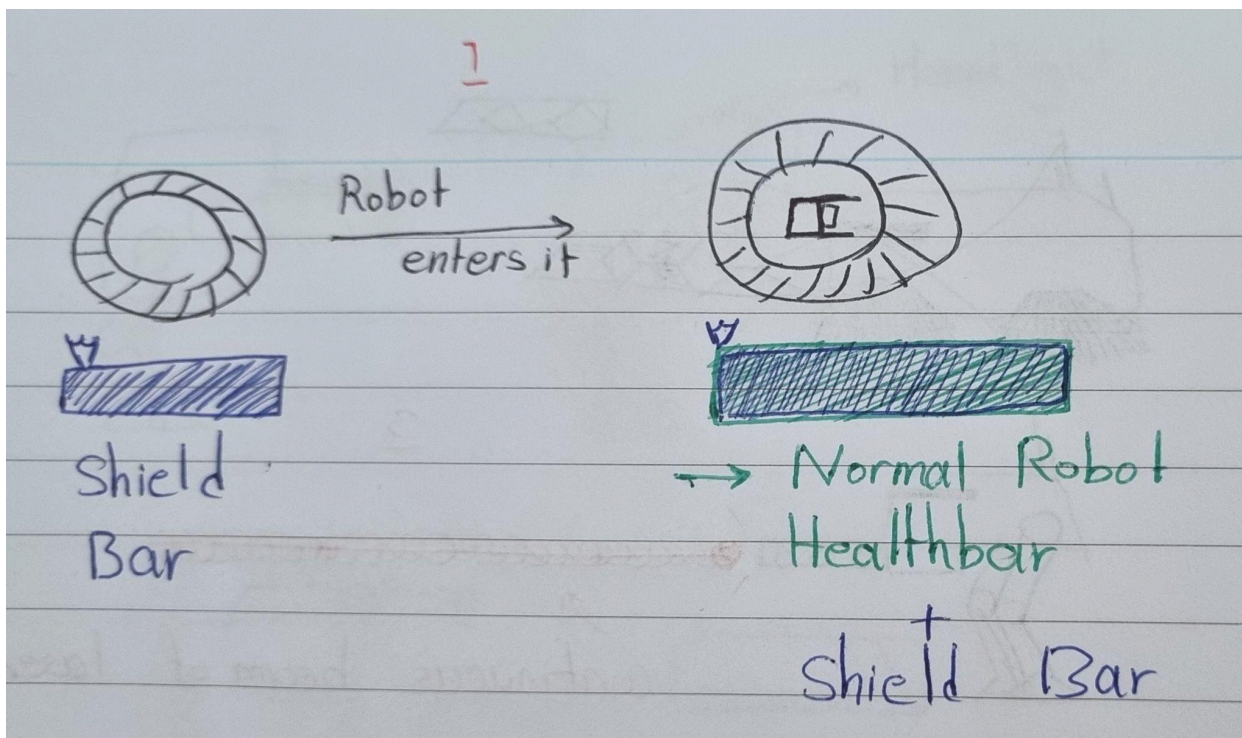 1
Robot
enters it
Shield
Bar
→ Normal Robot
Healthbar
+
Shield Bar